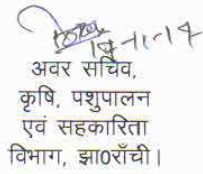 19-11-14
अवर सचिव,
कृषि, पशुपालन
एवं सहकारिता
विभाग, झा0राँची।